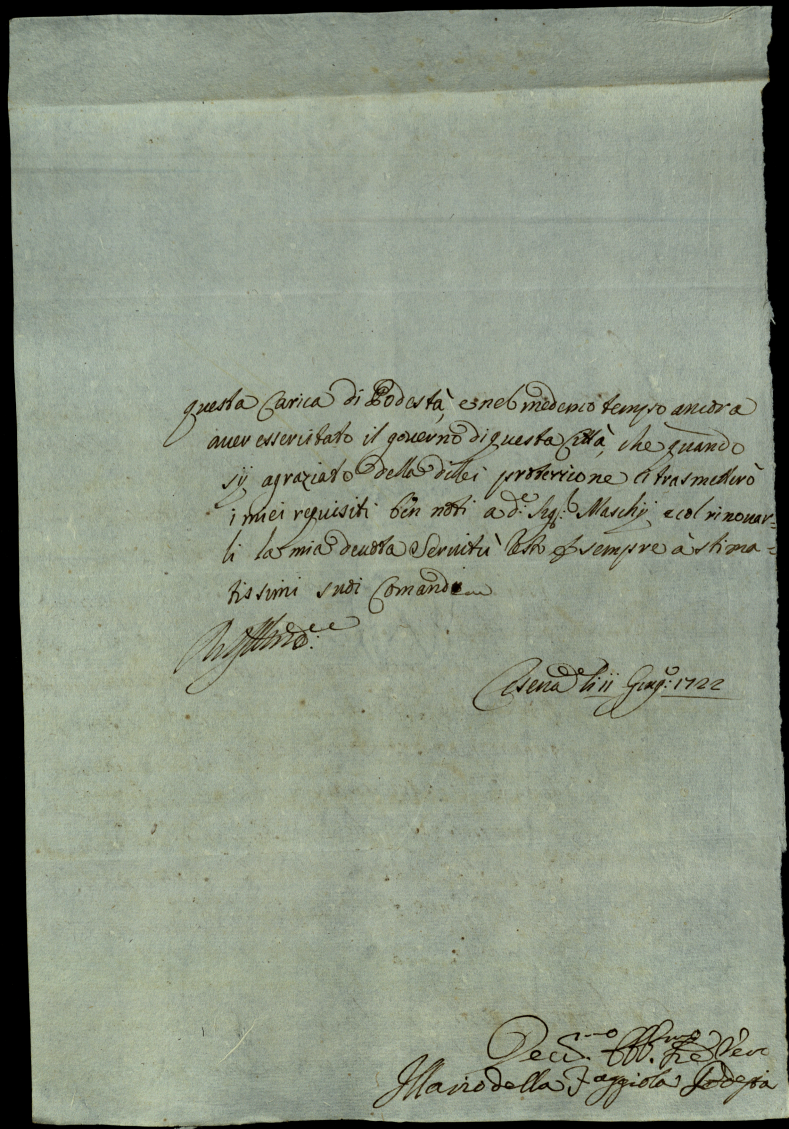 questa Carica di Podestà, e nel medemo tempo ancora
auer essercitato il gouerno di questa Città, che quando
sij agraziato della di lei protezione li trasmetterò
i miei requisiti ben noti a d.º Sig.r Maschij e col rinouar-
li la mia deuota Seruitù resto p sempre à stima-
tissimi suoi Comandi
Cesena li 11 Giug.º 1722
Deu.mo Obb.mo Ser
Mario della Faggiola Podestà